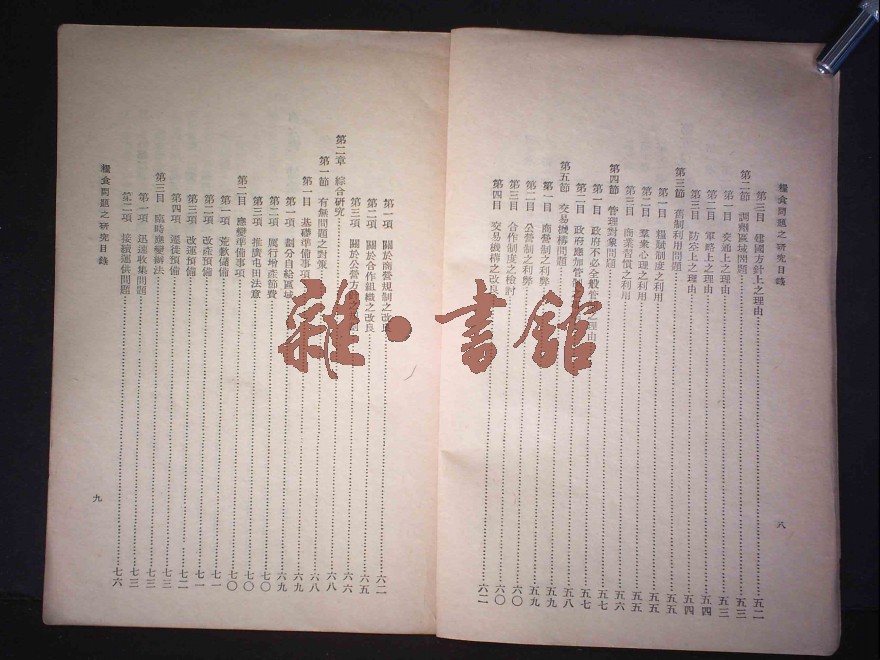 糧食問題之研究目錄
第三目 建國方針上之理由 五二
第二節 調劑區域問題 五三
第一目 交通上之理由 五三
第二目 軍略上之理由 五四
第三目 防空上之理由 五四
第三節 舊制利用問題 五五
第一目 糧賦制度之利用 五五
第二目 羣衆心理之利用 五五
第三目 商業習慣之利用 五六
第四節 管理對象問題 五七
第一目 政府不必全般管 理由 五七
第二目 政府應加管 五八
第五節 交易機構問題 五九
第一目 商營制之利弊 五九
第二目 公營制之利弊 六〇
第三目 合作制度之檢討 六〇
第四目 交易機構之改良 六二
八
第一項 關於商營規制之改良 六二
第二項 關於合作組織之改良 六五
第三項 關於公營方 六六
第二章 綜合研究 六八
第一節 有無問題之對策 六八
第一目 基礎準備事項 六九
第一項 劃分自給區域 六九
第二項 厲行增產節費 七〇
第三項 推廣屯田法意 七〇
第二目 應變準備事項 七〇
第一項 荒歉儲備 七一
第二項 改產預備 七一
第三項 改運預備 七二
第四項 遷徙預備 七二
第三目 臨時應變辦法 七三
第一項 迅速收集問題 七三
第二項 接續運供問題 七六
糧食問題之研究目錄
九
雜·書館